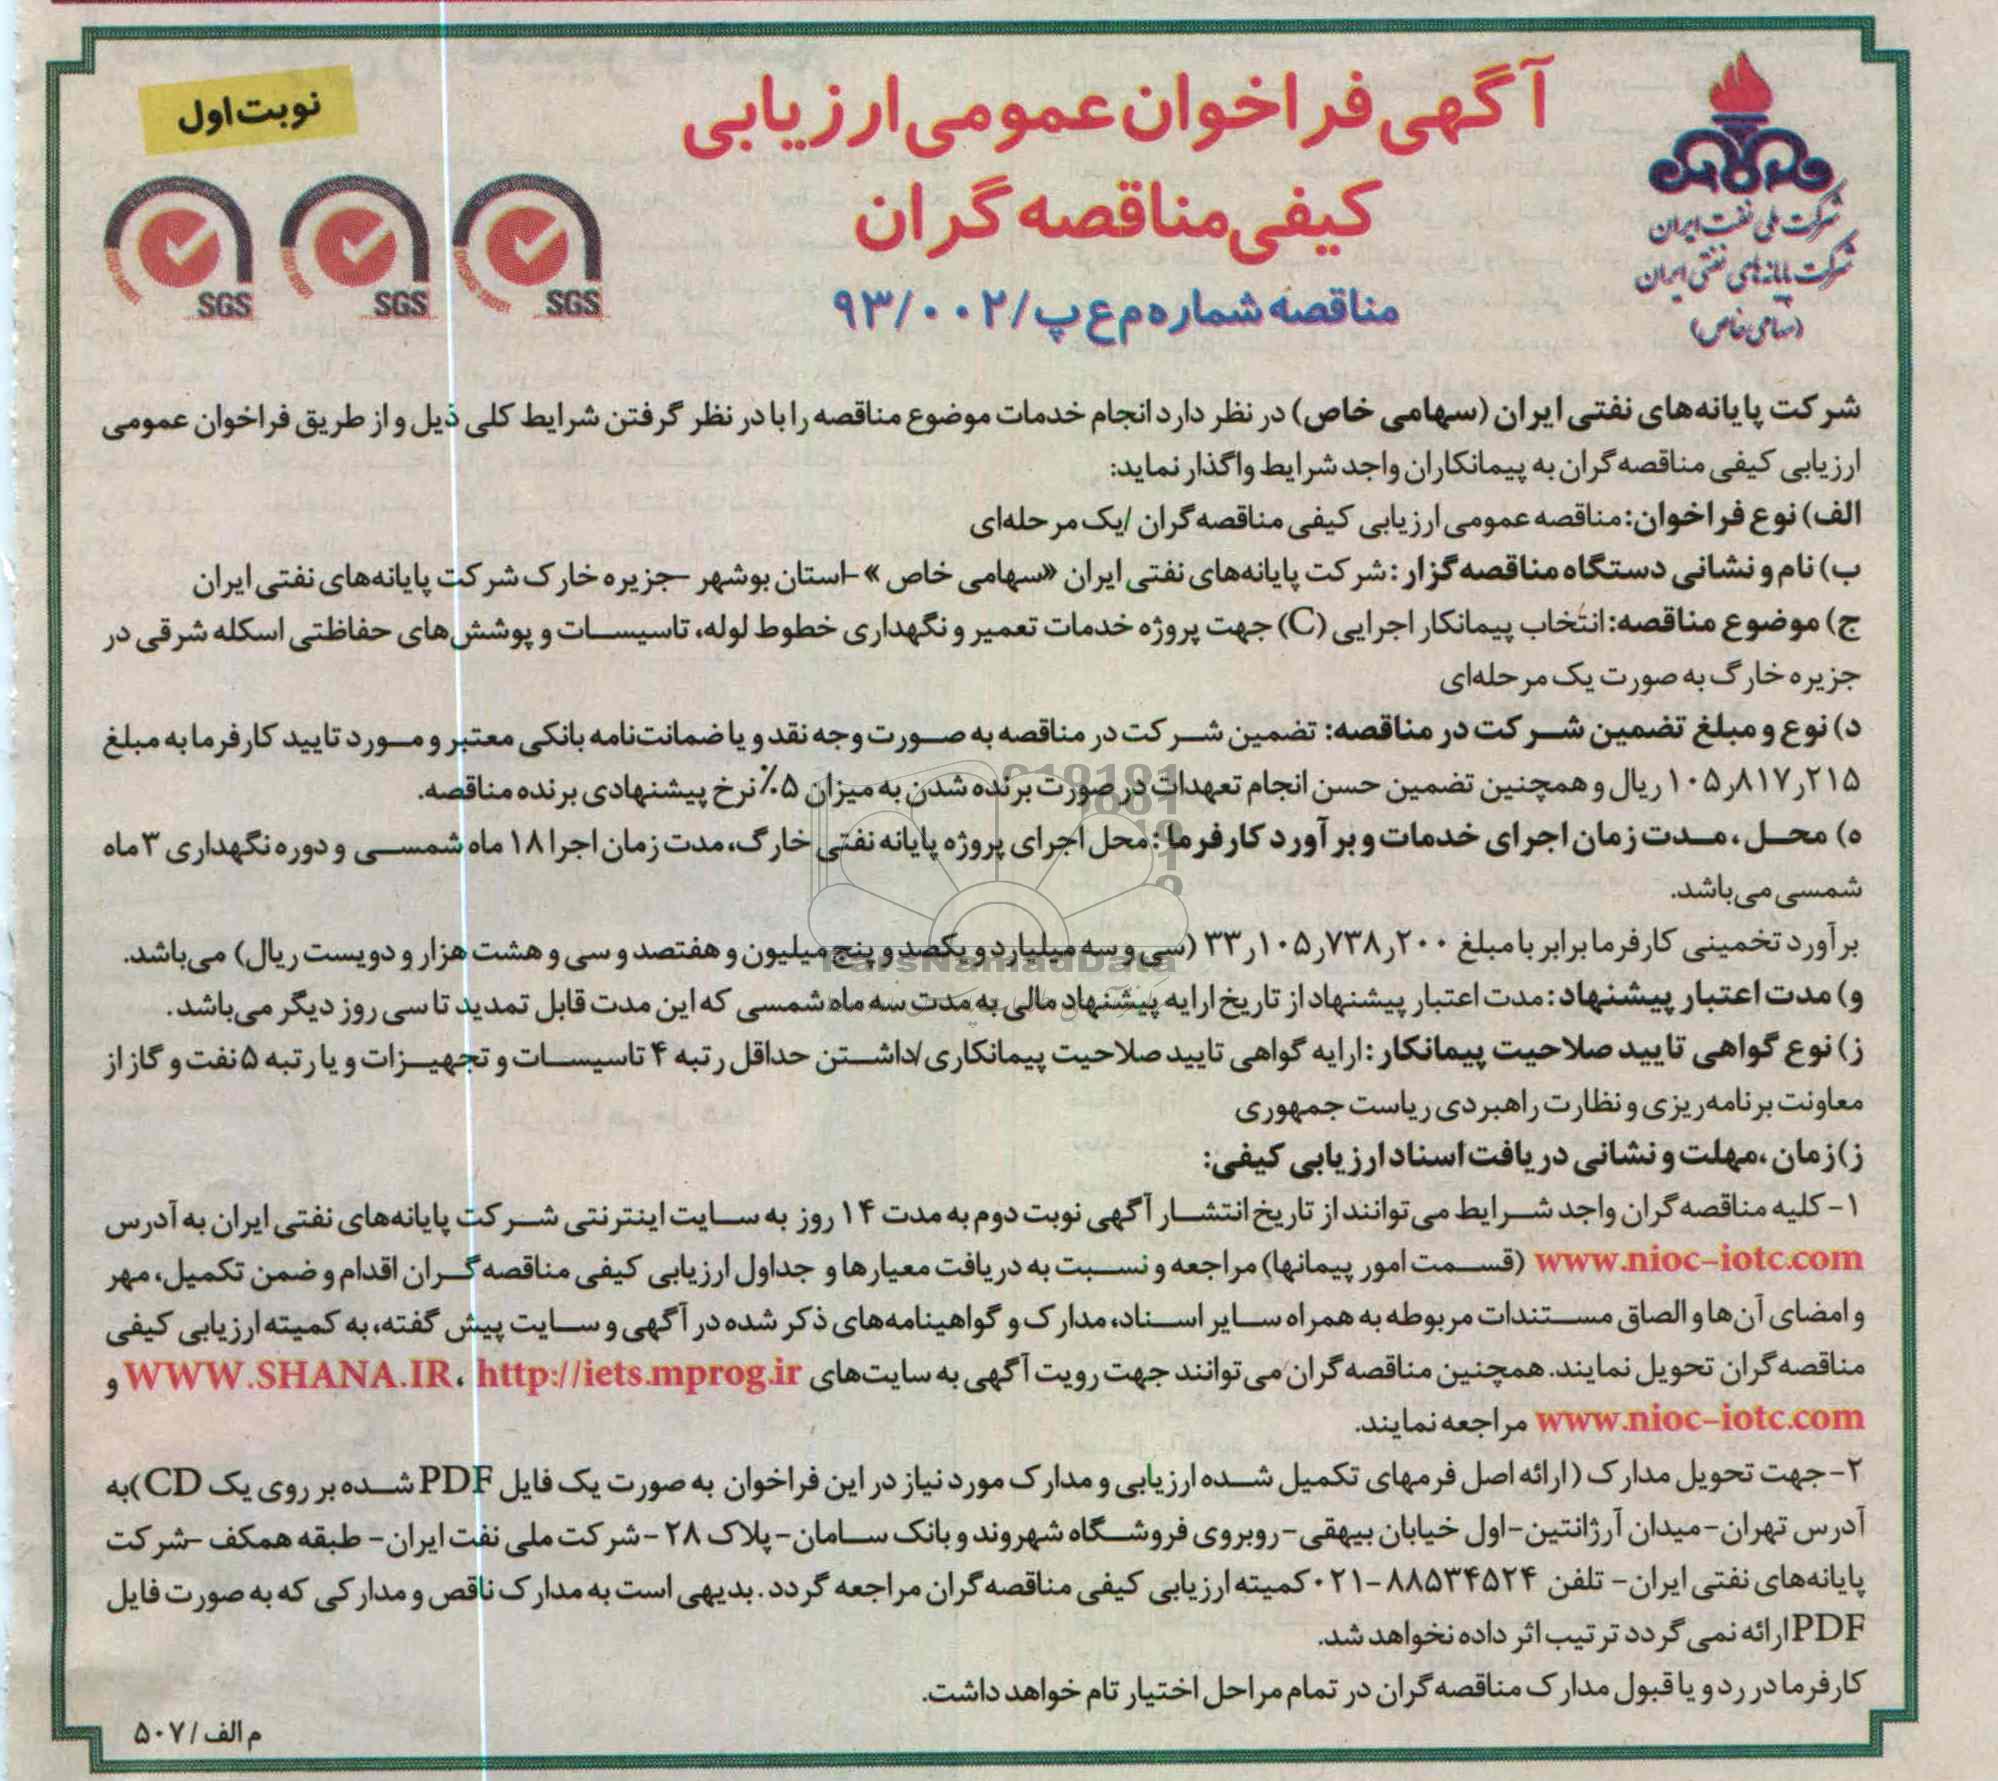 آگهی فراخوان عمومی ارزیابی
کیفی مناقصه گران
مناقصه شماره م ع پ/۹۳/۰۰۲
نوبت اول
SGS
SGS
SGS
شرکت ملی نفت ایران
شرکت پایانه‌های نفتی ایران
(سهامی خاص)
شرکت پایانه‌های نفتی ایران (سهامی خاص) در نظر دارد انجام خدمات موضوع مناقصه را با در نظر گرفتن شرایط کلی ذیل و از طریق فراخوان عمومی
ارزیابی کیفی مناقصه گران به پیمانکاران واجد شرایط واگذار نماید:
الف) نوع فراخوان: مناقصه عمومی ارزیابی کیفی مناقصه گران /یک مرحله‌ای
ب) نام و نشانی دستگاه مناقصه گزار: شرکت پایانه‌های نفتی ایران «سهامی خاص» -استان بوشهر -جزیره خارک شرکت پایانه‌های نفتی ایران
ج) موضوع مناقصه: انتخاب پیمانکار اجرایی (C) جهت پروژه خدمات تعمیر و نگهداری خطوط لوله، تاسیسات و پوشش‌های حفاظتی اسکله شرقی در
جزیره خارگ به صورت یک مرحله‌ای
د) نوع و مبلغ تضمین شرکت در مناقصه: تضمین شرکت در مناقصه به صورت وجه نقد و یا ضمانت‌نامه بانکی معتبر و مورد تایید کارفرما به مبلغ
۱۰۵٫۸۱۷٫۲۱۵ ریال و همچنین تضمین حسن انجام تعهدات در صورت برنده شدن به میزان ۵٪ نرخ پیشنهادی برنده مناقصه.
ه) محل، مدت زمان اجرای خدمات و برآورد کارفرما: محل اجرای پروژه پایانه نفتی خارگ، مدت زمان اجرا ۱۸ ماه شمسی و دوره نگهداری ۳ ماه
شمسی می‌باشد.
برآورد تخمینی کارفرما برابر با مبلغ ۳۳٫۱۰۵٫۷۳۸٫۲۰۰ (سی و سه میلیارد و یکصد و پنج میلیون و هفتصد و سی و هشت هزار و دویست ریال) می‌باشد.
و) مدت اعتبار پیشنهاد: مدت اعتبار پیشنهاد از تاریخ ارایه پیشنهاد مالی به مدت سه ماه شمسی که این مدت قابل تمدید تا سی روز دیگر می‌باشد.
ز) نوع گواهی تایید صلاحیت پیمانکار: ارایه گواهی تایید صلاحیت پیمانکاری/داشتن حداقل رتبه ۴ تاسیسات و تجهیزات و یا رتبه ۵ نفت و گاز از
معاونت برنامه‌ریزی و نظارت راهبردی ریاست جمهوری
ز) زمان، مهلت و نشانی دریافت اسناد ارزیابی کیفی:
۱- کلیه مناقصه گران واجد شرایط می‌توانند از تاریخ انتشار آگهی نوبت دوم به مدت ۱۴ روز به سایت اینترنتی شرکت پایانه‌های نفتی ایران به آدرس
www.nioc-iotc.com (قسمت امور پیمانها) مراجعه و نسبت به دریافت معیارها و جداول ارزیابی کیفی مناقصه گران اقدام و ضمن تکمیل، مهر
و امضای آن‌ها و الصاق مستندات مربوطه به همراه سایر اسناد، مدارک و گواهینامه‌های ذکر شده در آگهی و سایت پیش گفته، به کمیته ارزیابی کیفی
مناقصه گران تحویل نمایند. همچنین مناقصه گران می‌توانند جهت رویت آگهی به سایت‌های WWW.SHANA.IR، http://iets.mprog.ir و
www.nioc-iotc.com مراجعه نمایند.
۲- جهت تحویل مدارک (ارائه اصل فرمهای تکمیل شده ارزیابی و مدارک مورد نیاز در این فراخوان به صورت یک فایل PDF شده بر روی یک CD) به
آدرس تهران- میدان آرژانتین- اول خیابان بیهقی- روبروی فروشگاه شهروند و بانک سامان- پلاک ۲۸ - شرکت ملی نفت ایران- طبقه همکف -شرکت
پایانه‌های نفتی ایران- تلفن ۸۸۵۳۴۵۲۴-۰۲۱ کمیته ارزیابی کیفی مناقصه گران مراجعه گردد. بدیهی است به مدارک ناقص و مدارکی که به صورت فایل
PDF ارائه نمی گردد ترتیب اثر داده نخواهد شد.
کارفرما در رد و یا قبول مدارک مناقصه گران در تمام مراحل اختیار تام خواهد داشت.
م الف/۵۰۷
ParsNamadData